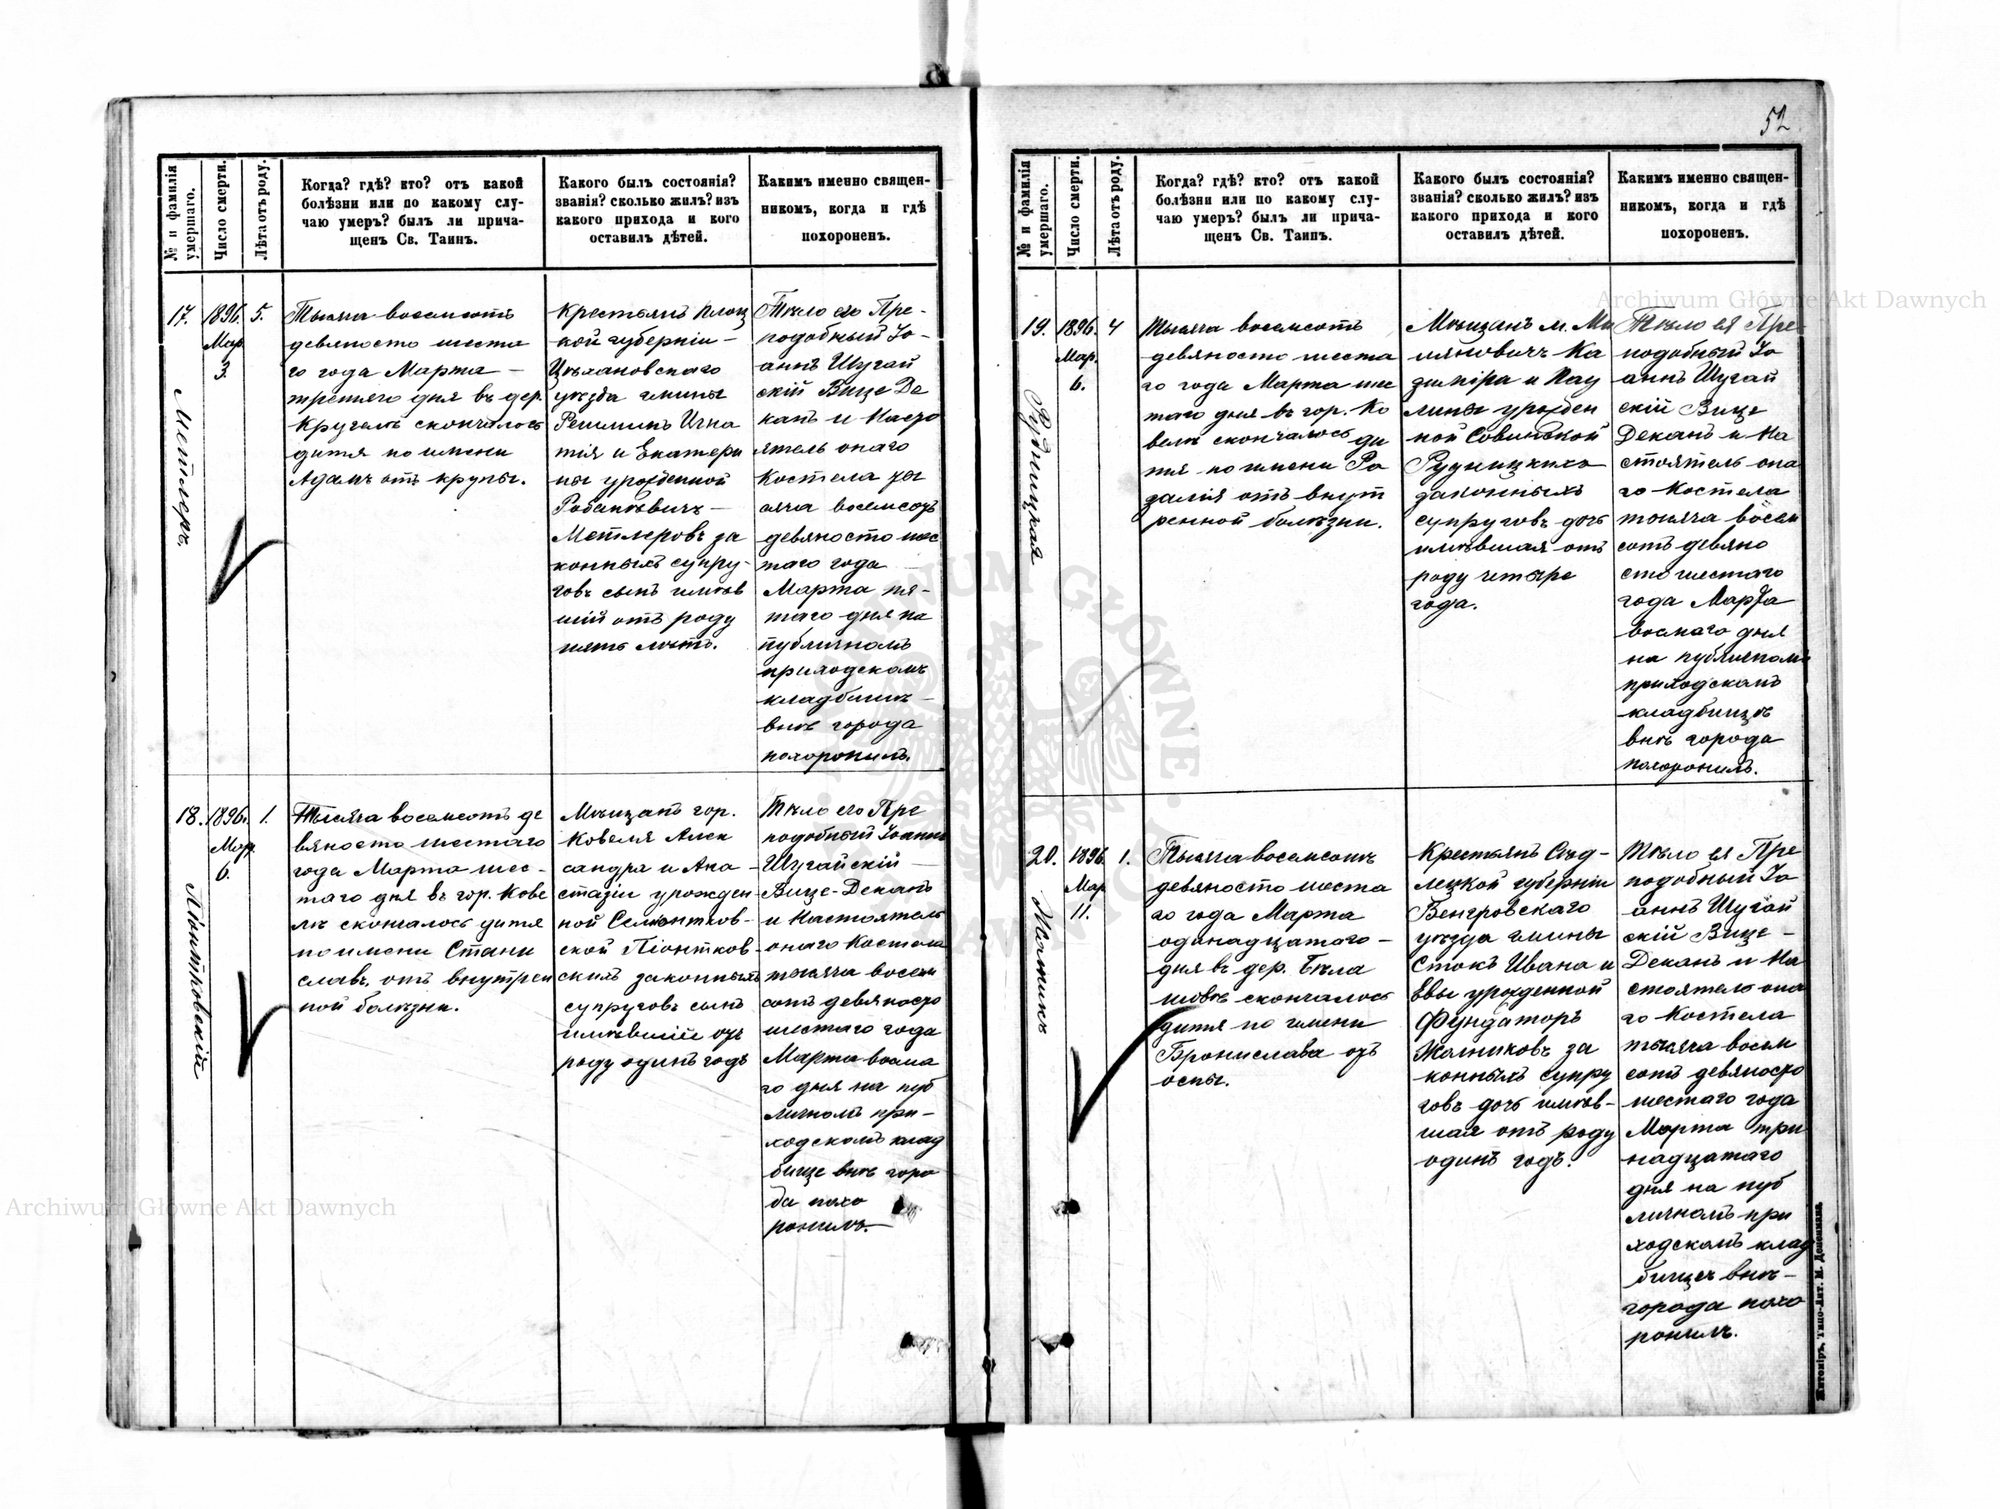 52
№ и фамилія умершаго.
Число смерти.
Лѣта отъ роду.
Когда? гдѣ? кто? отъ какой
болѣзни или по какому слу-
чаю умеръ? былъ ли прича-
щенъ Св. Таинъ.
Какого былъ состоянія?
званія? сколько жилъ? изъ
какого прихода и кого
оставилъ дѣтей.
Какимъ именно священ-
никомъ, когда и гдѣ
похороненъ.
17.
Метлеръ
1896.
Мар.
3.
5.
Тысяча восемьсотъ
девяносто шеста
го года Марта –
третяго дня въ дер.
Кругель скончалось
дитя по имени
Адамъ отъ крупы.
Крестьянъ Плоц
кой губерніи –
Цѣхановскаго
уѣзда гмины
Регимин Игна
тія и Екатери
ны урожденной
–
Метлеровъ за
конныхъ супру-
говъ сынъ имѣв
шій отъ роду
пять лѣтъ.
Тѣло его Пре-
подобный Іо-
аннъ Шугай
скій Вице Де
канъ и Насто
ятель онаго
Костела ты
сяча восемсотъ
девяносто шес
таго года
Марта пя-
таго дня на
публичномъ
приходскомъ
кладбищѣ –
внѣ города
похоронилъ.
18.
Піонтковскій
1896.
Мар.
6.
1.
Тысяча восемсотъ де
вяносто шестаго
года Марта шес-
таго дня въ гор. Кове
лѣ скончалось дитя
по имени Стани
славъ, отъ внутрен
ной болѣзни.
Мѣщанъ гор.
Ковеля Алек
сандра и Ана-
стазіи урожден-
ной
ской Піонтков-
скихъ законныхъ
супруговъ сынъ
имѣвшій отъ
роду одинъ годъ
Тѣло его Пре
подобный Іоаннъ
Шугайскій –
Вице-Деканъ
и Настоятель
онаго Костела
тысяча восем
сотъ девяносто
шестаго года
Марта восма
го дня на пуб
личномъ при-
ходскомъ клад
бище внѣ горо
да похо
ронилъ.
№ и фамилія умершаго.
Число смерти.
Лѣта отъ роду.
Когда? гдѣ? кто? отъ какой
болѣзни или по какому слу-
чаю умеръ? былъ ли прича-
щенъ Св. Таинъ.
Какого былъ состоянія?
званія? сколько жилъ? изъ
какого прихода и кого
оставилъ дѣтей.
Какимъ именно священ-
никомъ, когда и гдѣ
похороненъ.
19.
Рудницкая
1896.
Мар.
6.
4
Тысяча восемсотъ
девяносто шеста
го года Марта шес
таго дня въ гор. Ко
велѣ скончалось ди
тя по имени Ро
залія отъ внут
ренной болѣзни.
Мѣщанъ м. Ми
ляновичъ Ка
зиміра и Пау
лины урожден
ной Совинской
Рудницкихъ
законныхъ
супруговъ дочь
имѣвшая отъ
роду четыре
года.
Тѣло ея Пре
подобный Іо
аннъ Шугай
скій Вице
Деканъ и На
стоятель она
го Костела
тысяча восем
сотъ девяно
сто шестаго
года Марта
восмаго дня
на публичномъ
приходскомъ
кладбищѣ
внѣ города
похоронилъ.
20.
Жолникъ
1896.
Мар.
11.
1.
Тысяча восемсотъ
девяносто шеста
го года Марта
одинадцатаго –
дня въ дер. Бѣла
шовѣ скончалось
дитя по имени
Бронислава отъ
оспы.
Крестьянъ Сѣд-
лецкой губерніи
Венгровскаго
уѣзда гмины
Стокъ Ивана и
Евы урожденной
Фундаторъ
Жолниковъ за
конныхъ супру
говъ дочь имѣв-
шая отъ роду
одинъ годъ.
Тѣло ея Пре
подобный Іо
аннъ Шугай
скій Вице –
Деканъ и На
стоятель она
го Костела
тысяча восем
сотъ девяносто
шестаго года
Марта три
надцатаго
дня на пуб
личномъ при
ходскомъ клад
бищѣ внѣ –
города похо
ронилъ.
Житоміръ, Типо-Лит. М. Дененмана.
Archiwum Główne Akt Dawnych
Archiwum Główne Akt Dawnych